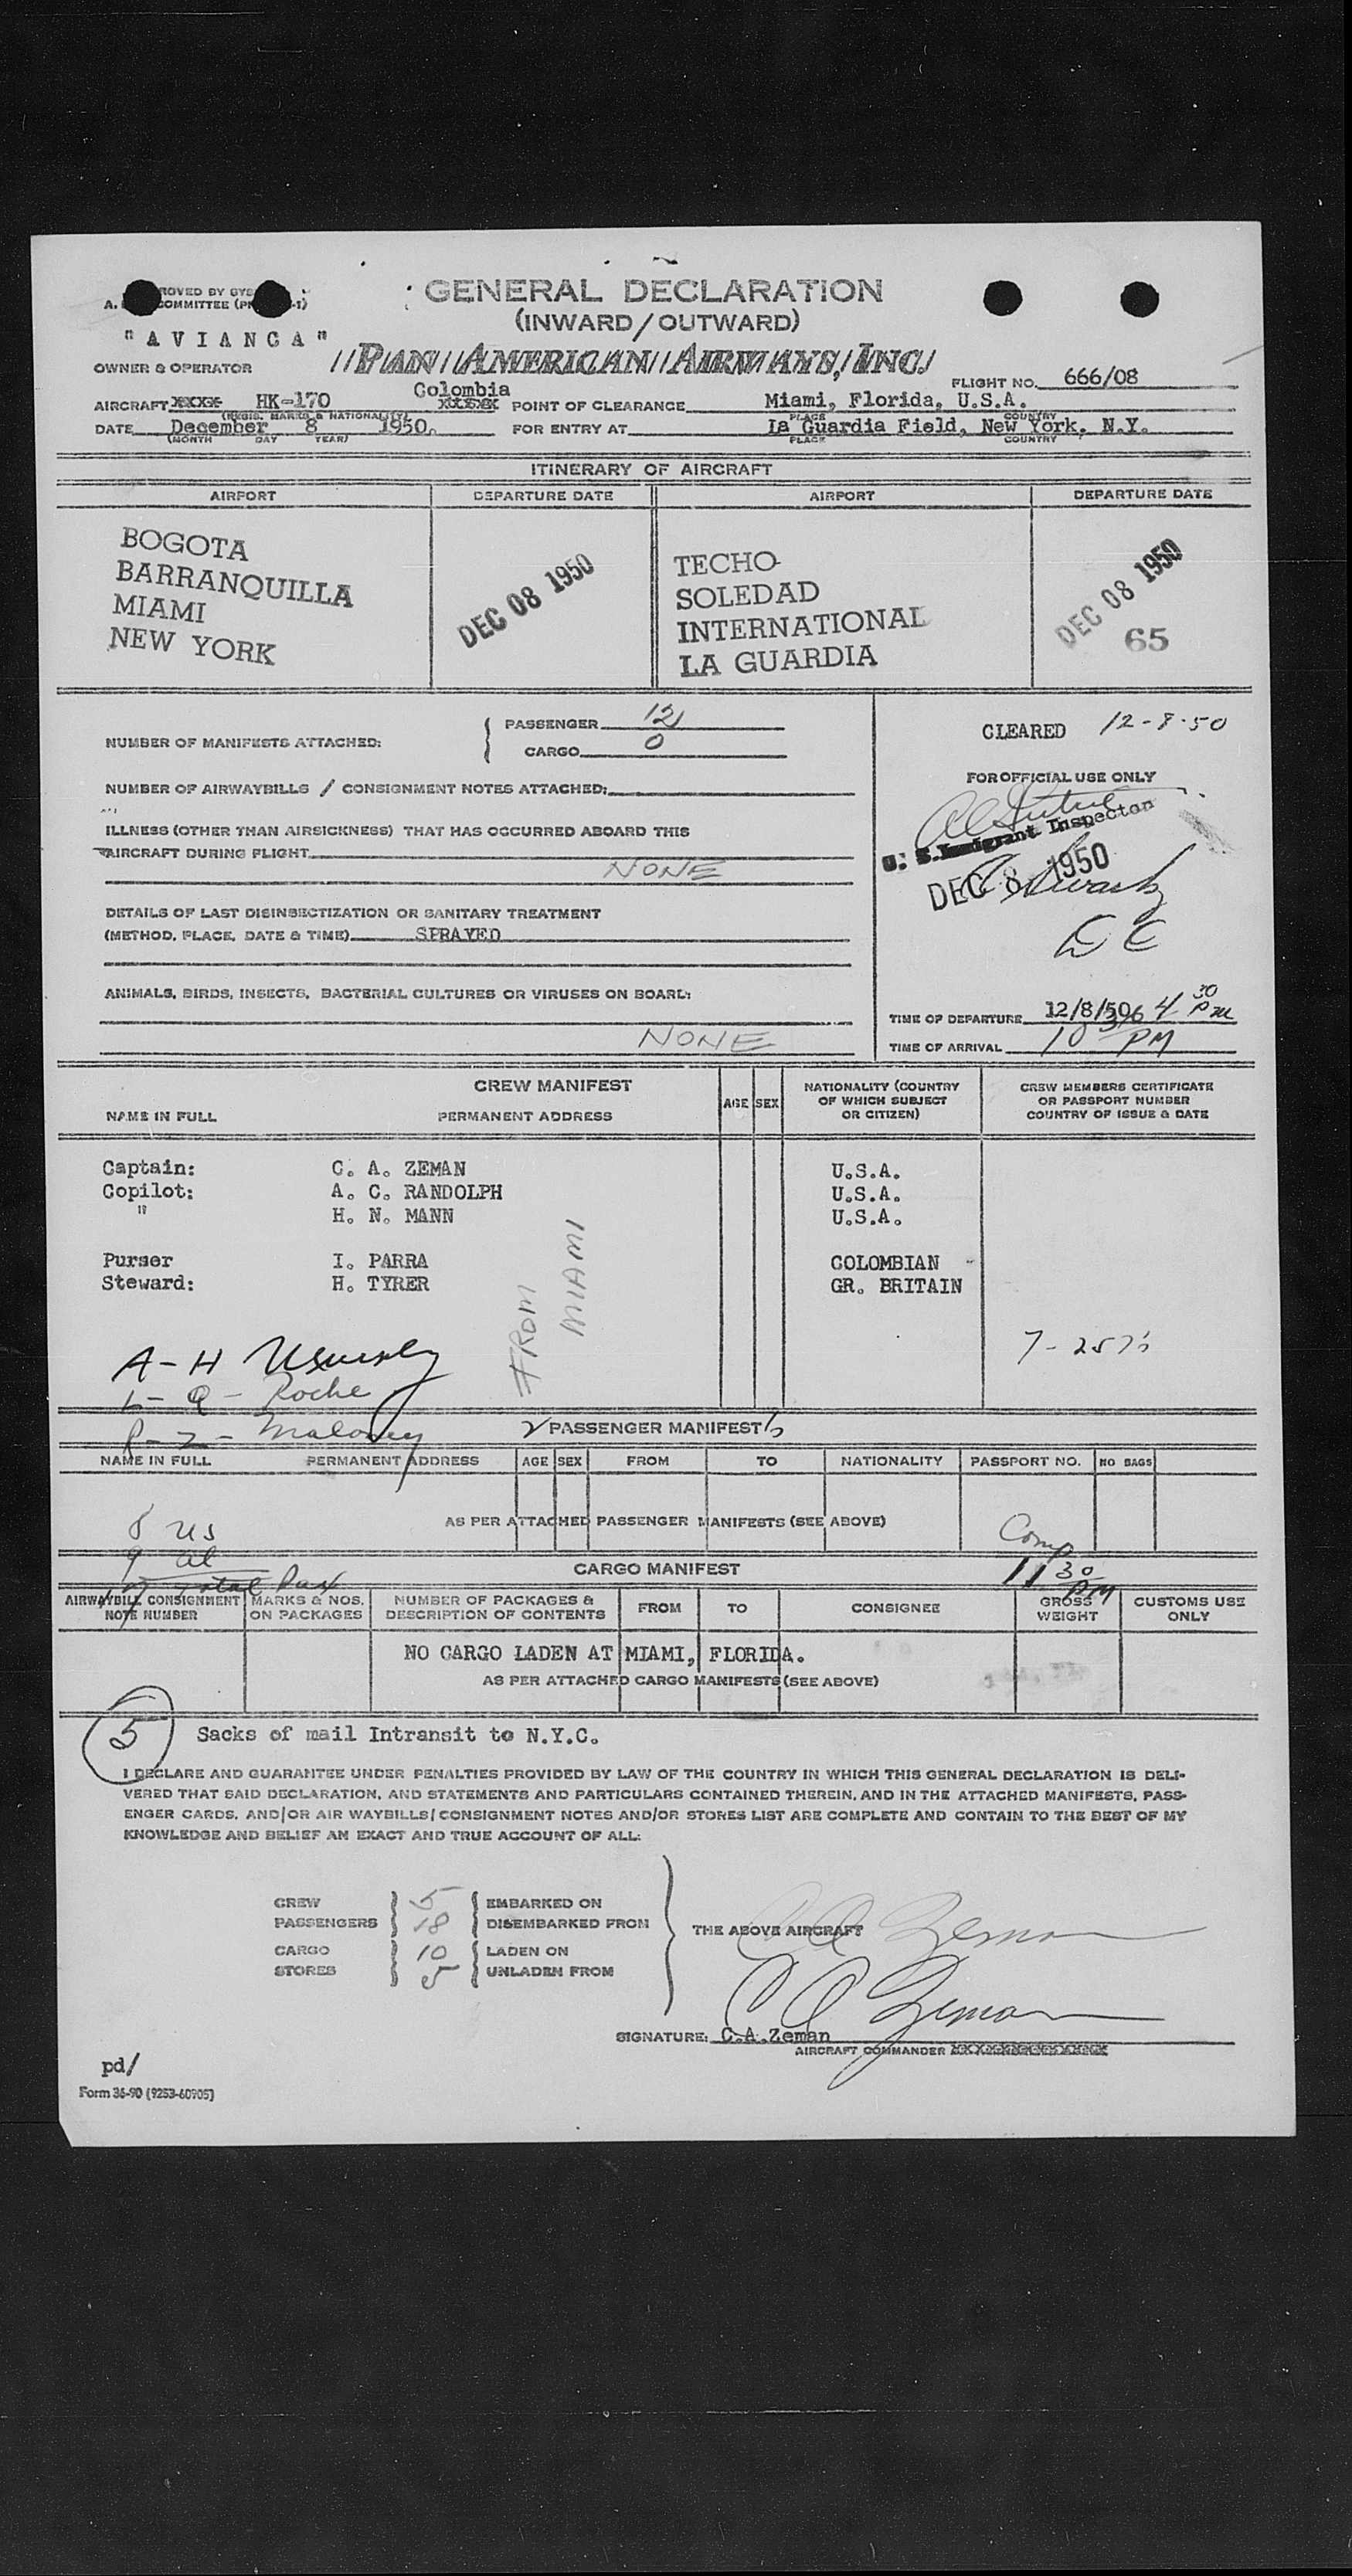 GENERAL DECLARATION
(INWARD/OUTWARD)
"AVIANCA"
OWNER & OPERATOR
PAN AMERICAN AIRWAYS, INC.
FLIGHT NO. 666/08
Colombia
AIRCRAFT XXXX HK-170 POINT OF CLEARANCE Miami, Florida, U.S.A.
(REGIS. MARKS & NATIONALITY) PLACE COUNTRY
DATE December 8 1950. FOR ENTRY AT La Guardia Field, New York, N.Y.
(MONTH DAY YEAR) PLACE COUNTRY
ITINERARY OF AIRCRAFT
AIRPORT DEPARTURE DATE AIRPORT DEPARTURE DATE
BOGOTA
BARRANQUILLA
MIAMI
NEW YORK
DEC 08 1950
TECHO
SOLEDAD
INTERNATIONAL
LA GUARDIA
DEC 08 1950
65
NUMBER OF MANIFESTS ATTACHED:
PASSENGER 12
CARGO 0
NUMBER OF AIRWAYBILLS / CONSIGNMENT NOTES ATTACHED:
ILLNESS (OTHER THAN AIRSICKNESS) THAT HAS OCCURRED ABOARD THIS
AIRCRAFT DURING FLIGHT
NONE
DETAILS OF LAST DISINSECTIZATION OR SANITARY TREATMENT
(METHOD, PLACE, DATE & TIME) SPRAYED
ANIMALS, BIRDS, INSECTS, BACTERIAL CULTURES OR VIRUSES ON BOARD:
NONE
CLEARED 12-8-50
FOR OFFICIAL USE ONLY
U. S. Immigrant Inspector
DEC 8 1950
TIME OF DEPARTURE 12/8/50 4 30 PM
TIME OF ARRIVAL 10 PM
CREW MANIFEST
NAME IN FULL PERMANENT ADDRESS AGE SEX NATIONALITY (COUNTRY OF WHICH SUBJECT OR CITIZEN) CREW MEMBERS CERTIFICATE OR PASSPORT NUMBER COUNTRY OF ISSUE & DATE
Captain: C. A. ZEMAN U.S.A.
Copilot: A. C. RANDOLPH U.S.A.
" H. N. MANN U.S.A.
Purser I. PARRA COLOMBIAN
Steward: H. TYRER GR. BRITAIN
FROM
MIAMI
A-H
Roche
Maloney
PASSENGER MANIFEST
NAME IN FULL PERMANENT ADDRESS AGE SEX FROM TO NATIONALITY PASSPORT NO. NO BAGS
8 US
9 al
Total Pax
AS PER ATTACHED PASSENGER MANIFESTS (SEE ABOVE)
Comp
11 30 PM
CARGO MANIFEST
AIRWAYBILL CONSIGNMENT NOTE NUMBER MARKS & NOS. ON PACKAGES NUMBER OF PACKAGES & DESCRIPTION OF CONTENTS FROM TO CONSIGNEE GROSS WEIGHT CUSTOMS USE ONLY
NO CARGO LADEN AT MIAMI, FLORIDA.
AS PER ATTACHED CARGO MANIFESTS (SEE ABOVE)
5 Sacks of mail Intransit to N.Y.C.
I DECLARE AND GUARANTEE UNDER PENALTIES PROVIDED BY LAW OF THE COUNTRY IN WHICH THIS GENERAL DECLARATION IS DELI-
VERED THAT SAID DECLARATION, AND STATEMENTS AND PARTICULARS CONTAINED THEREIN, AND IN THE ATTACHED MANIFESTS, PASS-
ENGER CARDS, AND/OR AIR WAYBILLS/CONSIGNMENT NOTES AND/OR STORES LIST ARE COMPLETE AND CONTAIN TO THE BEST OF MY
KNOWLEDGE AND BELIEF AN EXACT AND TRUE ACCOUNT OF ALL:
CREW 5 EMBARKED ON
PASSENGERS 18 DISEMBARKED FROM
CARGO 10 LADEN ON
STORES 5 UNLADEN FROM
THE ABOVE AIRCRAFT
CA Zeman
CA Zeman
SIGNATURE: C.A.Zeman
AIRCRAFT COMMANDER
pd/
Form 36-90 (9253-60905)